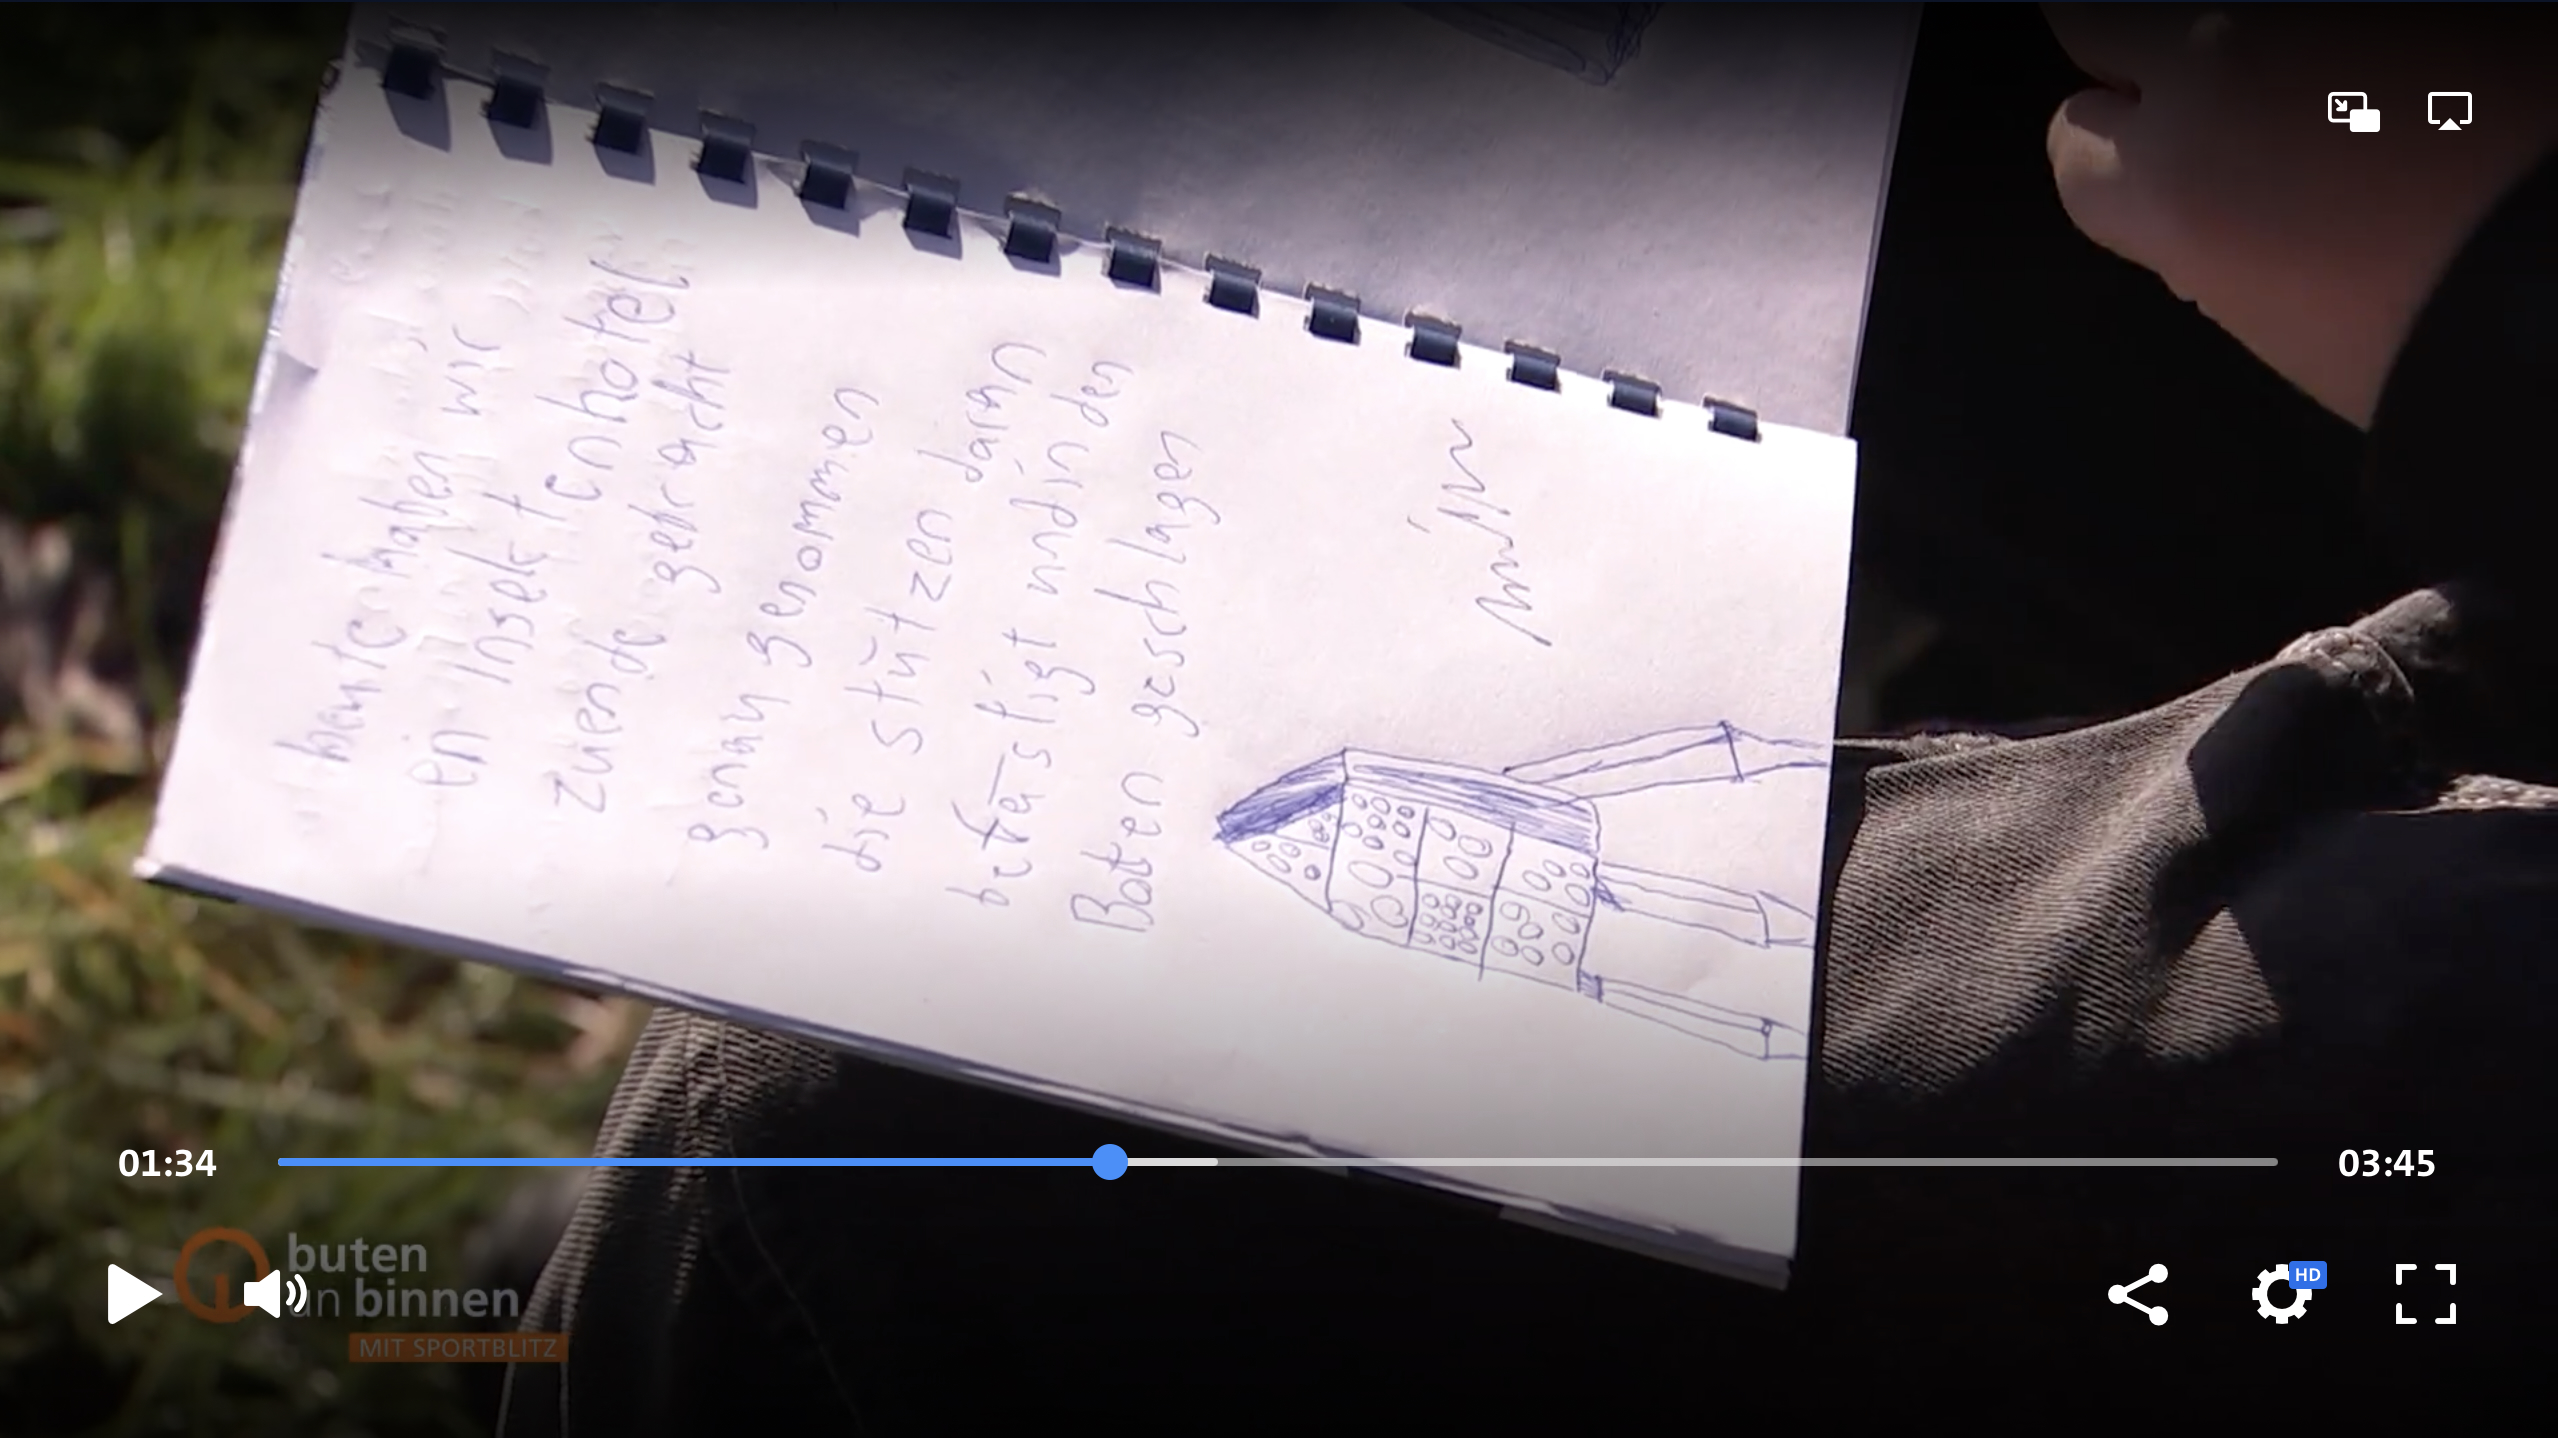 heute haben wir
ein Insektenhotel
zuende gebracht
genau genommen
die stützen daran
befestigt und in den
Boten geschlagen
01:34
03:45
buten
un binnen
MIT SPORTBLITZ
HD